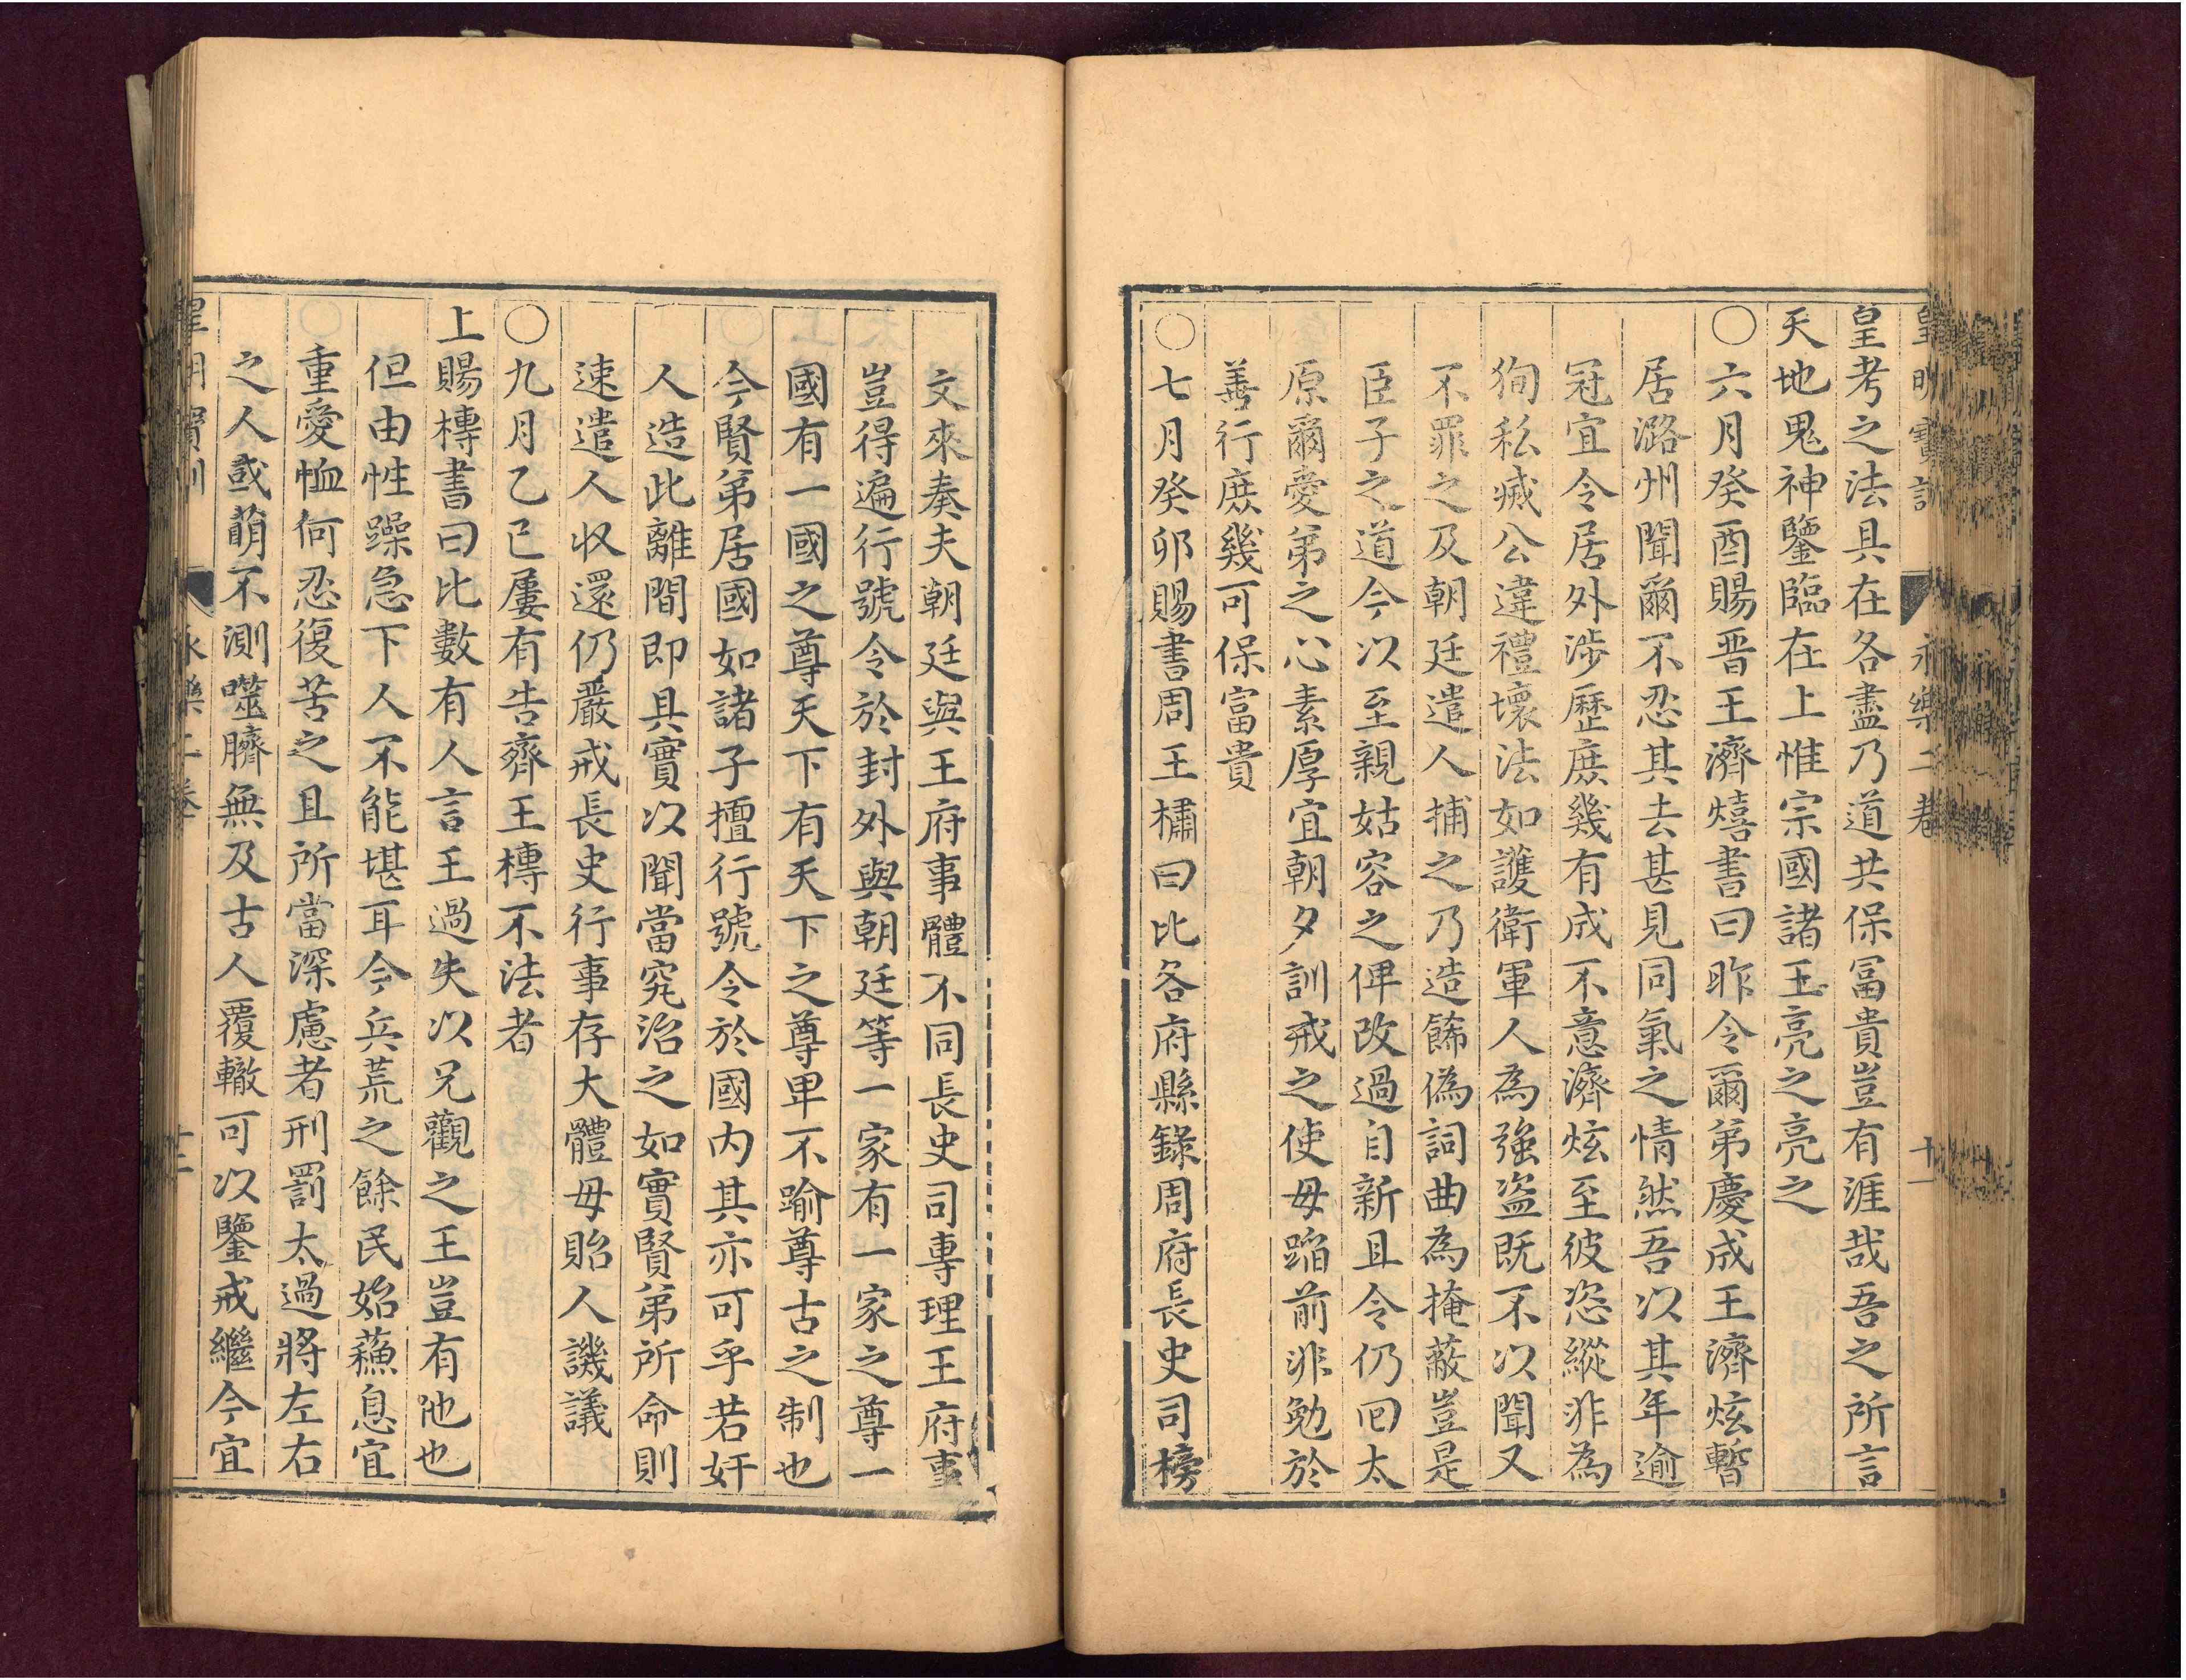 皇明寶訓 永樂二卷 十一
皇考之法具在各盡乃道共保冨貴豈有涯哉吾之所言
天地鬼神鑒臨在上惟宗國諸王亮之亮之
○六月癸酉賜晋王濟熺書曰昨令爾弟慶成王濟炫暫
居潞州聞爾不忍其去甚見同氣之情然吾以其年逾
冠宜令居外涉歷庶幾有成不意濟炫至彼恣縱非為
狥私滅公違禮壞法如護衛軍人為強盗既不以聞又
不罪之及朝廷遣人捕之乃造餙偽詞曲為掩蔽豈是
臣子之道今以至親姑容之俾改過自新且令仍囬太
原爾愛弟之心素厚宜朝夕訓戒之使毋蹈前非勉於
善行庶幾可保富貴
○七月癸卯賜書周王橚曰比各府縣錄周府長史司榜
文來奏夫朝廷與王府事體不同長史司專理王府事
豈得遍行號令於封外與朝廷等一家有一家之尊一
國有一國之尊天下有天下之尊卑不踰尊古之制也
今賢弟居國如諸子擅行號令於國内其亦可乎若奸
人造此離間即具實以聞當究治之如實賢弟所命則
速遣人收還仍嚴戒長史行事存大體毋貽人譏議
○九月乙巳屢有告齊王榑不法者
上賜榑書曰比數有人言王過失以兄觀之王豈有他也
但由性躁急下人不能堪耳今兵荒之餘民始蘓息宜
重愛恤何忍復苦之且所當深慮者刑罰太過將左右
之人或萌不測噬臍無及古人覆轍可以鑒戒繼今宜
皇明寶訓 永樂二卷 十二